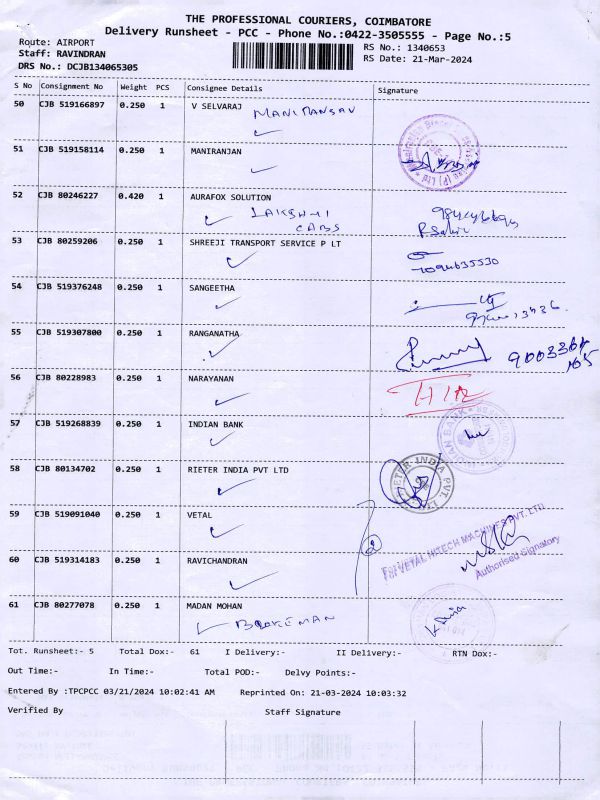 THE PROFESSIONAL COURIERS, COIMBATORE
Delivery Runsheet - PCC - Phone No.:0422-3505555 - Page No.:5
Route: AIRPORT
RS No.: 1340653
Staff: RAVINDRAN
RS Date: 21-Mar-2024
DRS No.: DCJB134065305
S No Consignment No Weight PCS Consignee Details Signature
50 CJB 519166897 0.250 1 V SELVARAJ
51 CJB 519158114 0.250 1 MANIRANJAN
52 CJB 80246227 0.420 1 AURAFOX SOLUTION
LAKSHMI
CABS
53 CJB 80259206 0.250 1 SHREEJI TRANSPORT SERVICE P LT
54 CJB 519376248 0.250 1 SANGEETHA
55 CJB 519307800 0.250 1 RANGANATHA
56 CJB 80228983 0.250 1 NARAYANAN
57 CJB 519268839 0.250 1 INDIAN BANK
INDIAN BANK
58 CJB 80134702 0.250 1 RIETER INDIA PVT LTD
RIETER INDIA PVT. LTD
59 CJB 519091040 0.250 1 VETAL
2
For VETAL HITECH MACHINES PVT. LTD
Authorised Signatory
60 CJB 519314183 0.250 1 RAVICHANDRAN
61 CJB 80277078 0.250 1 MADAN MOHAN
Tot. Runsheet:- 5 Total Dox:- 61 I Delivery:- II Delivery:- RTN Dox:-
Out Time:- In Time:- Total POD:- Delvy Points:-
Entered By :TPCPCC 03/21/2024 10:02:41 AM Reprinted On: 21-03-2024 10:03:32
Verified By Staff Signature